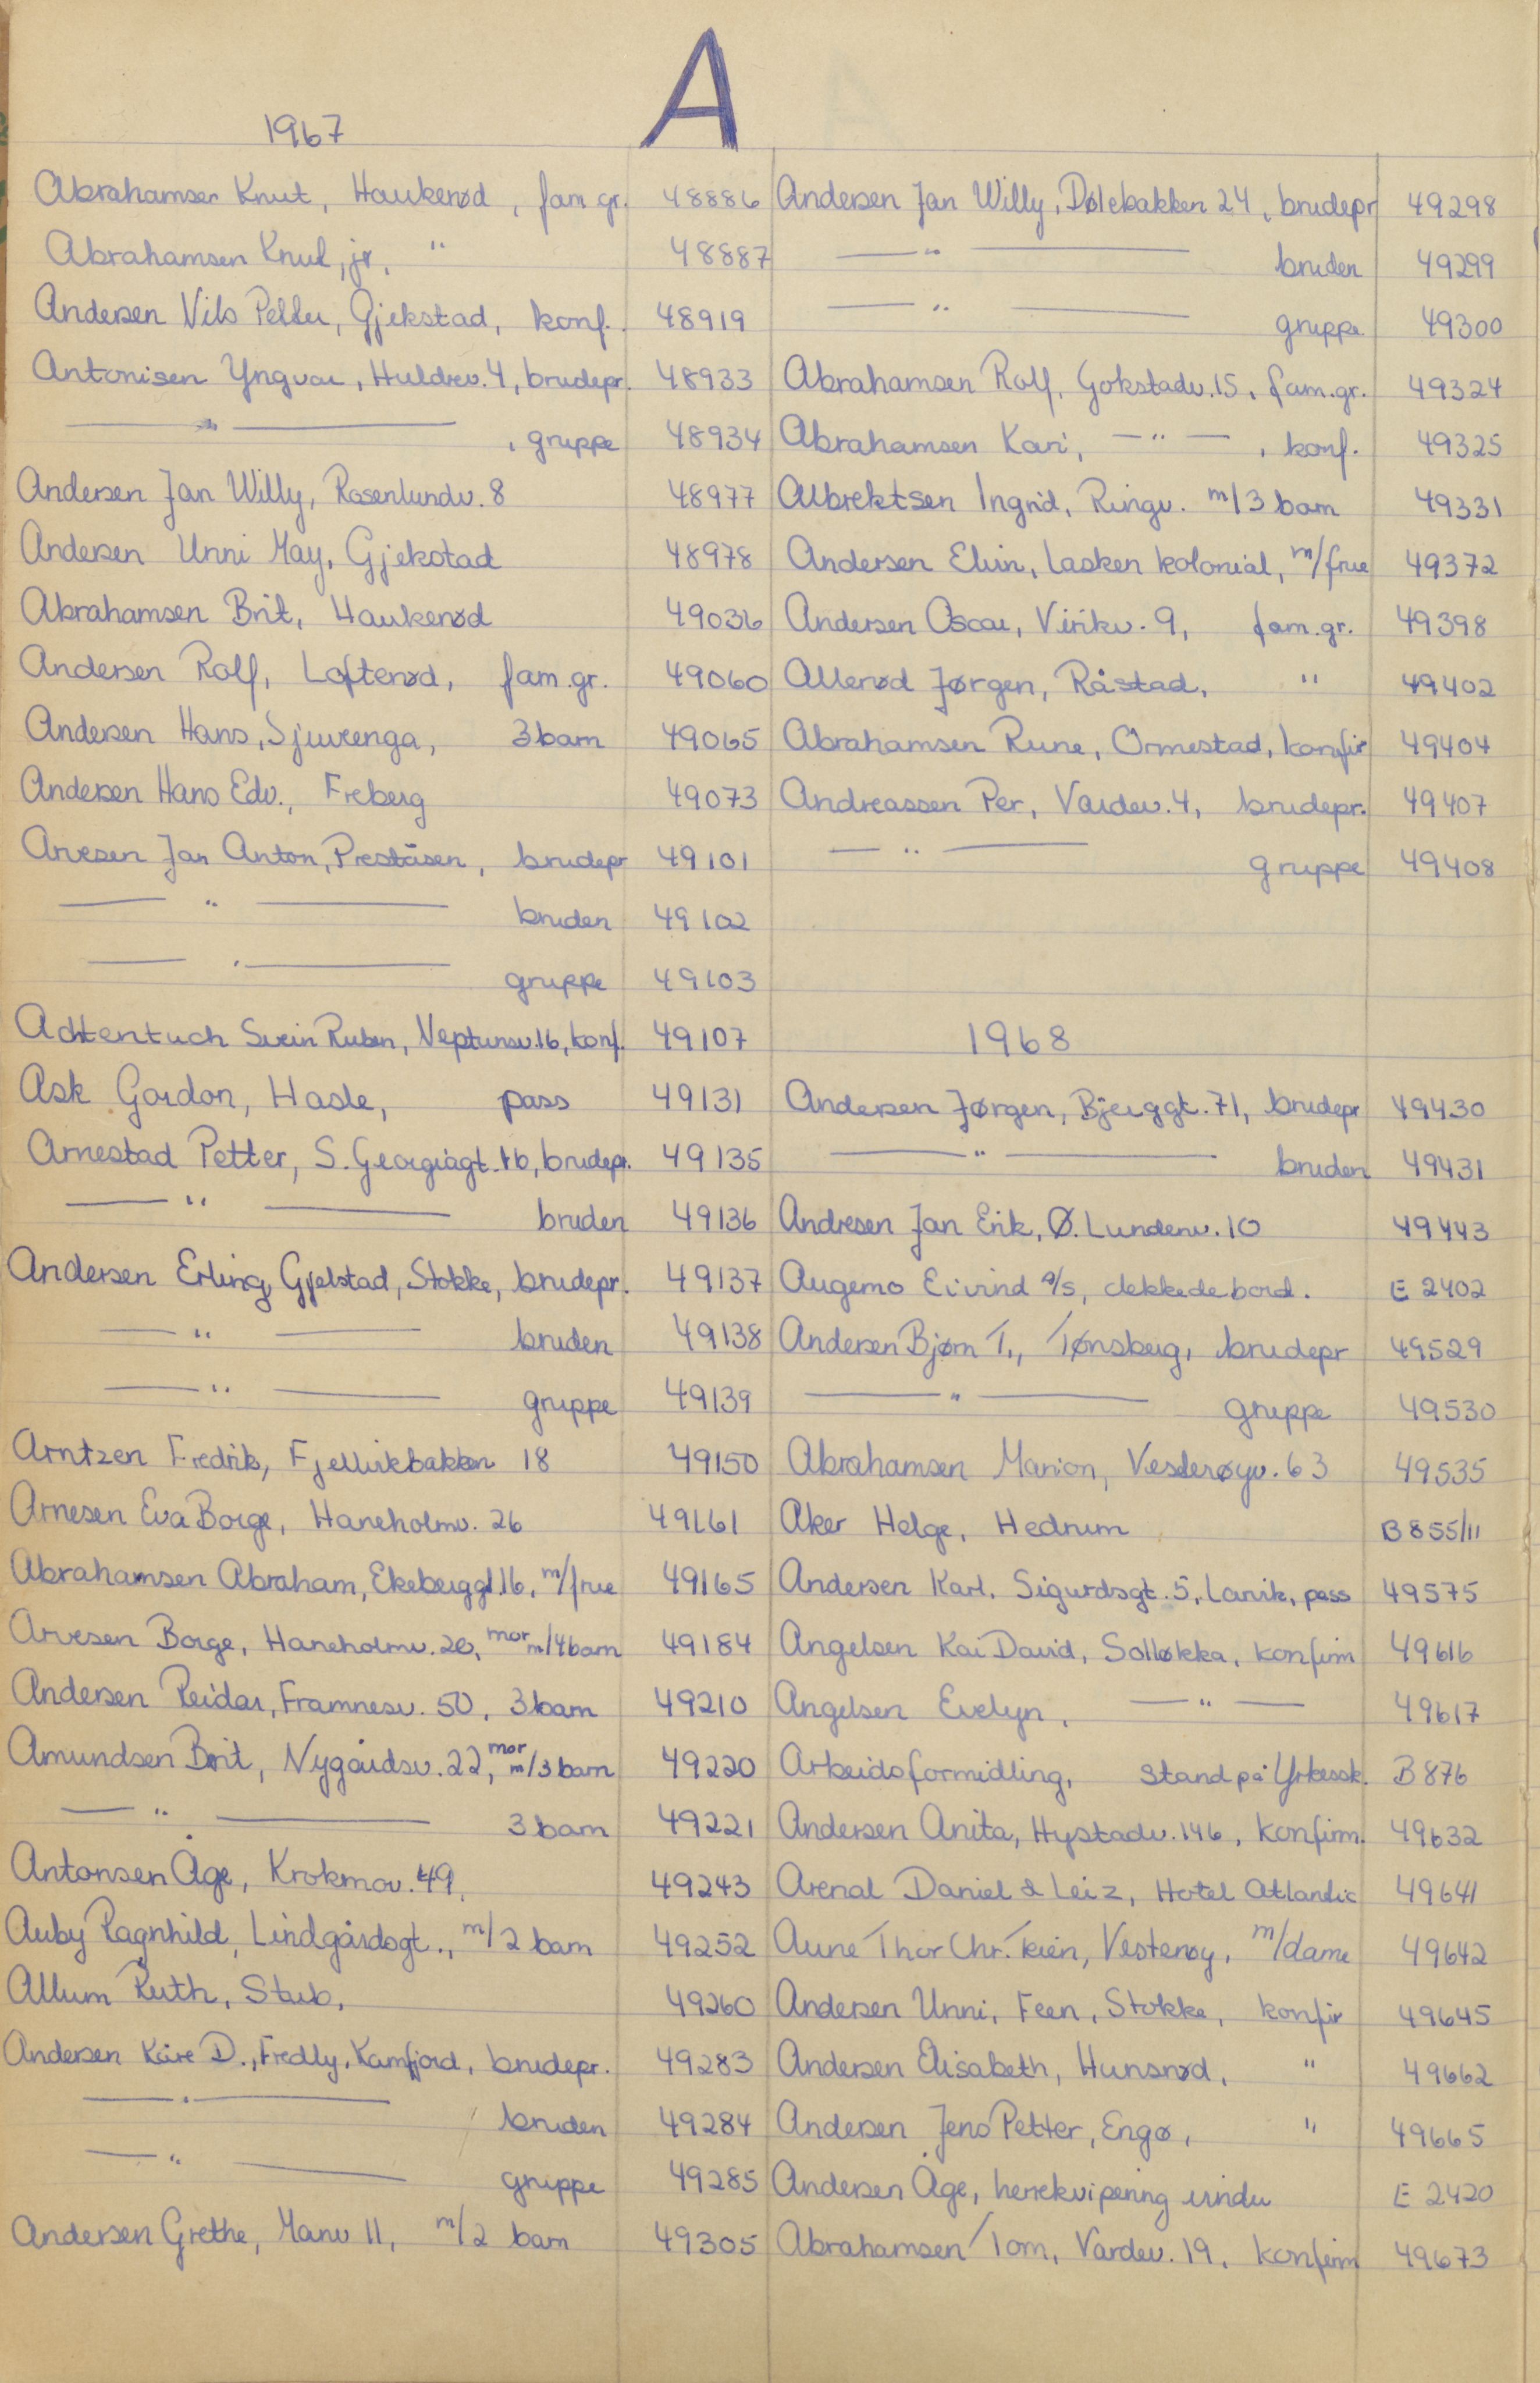 A
1967
Abrahamsen Knut, Haukerød, fam.gr. 48886
Abrahamsen Knut, jr. " 48887
Andersen Nils Petter, Gjekstad, konf. 48919
Antonisen Yngvar, Huldrev. 4, brudepr. 48933
— " — , gruppe 48934
Andersen Jan Willy, Rosenlundv. 8 48977
Andersen Unni May, Gjekstad 48978
Abrahamsen Brit, Haukerød 49036
Andersen Rolf, Lofterød, fam.gr. 49060
Andersen Hans, Sjuvenga, 3 barn 49065
Andersen Hans Edv., Freberg 49073
Arvesen Jan Anton, Preståsen, brudepr 49101
— " — bruden 49102
— " — gruppe 49103
Achtentuch Svein Ruben, Neptunsv. 16, konf. 49107
Ask Gordon, Hasle, pass 49131
Arnestad Petter, S. Georgiagt. 16, brudepr. 49135
— " — bruden 49136
Andersen Erling Gjelstad, Stokke, brudepr. 49137
— " — bruden 49138
— " — gruppe 49139
Arntzen Fredrik, Fjellvikbakken 18 49150
Arnesen Eva Borge, Haneholmv. 26 49161
Abrahamsen Abraham, Ekeberggt. 16, m/frue 49165
Arvesen Borge, Haneholmv. 20, mor m/4 barn 49184
Andersen Reidar, Framnesv. 50, 3 barn 49210
Amundsen Brit, Nygårdsv. 22, mor m/3 barn 49220
— " — 3 barn 49221
Antonsen Åge, Krokmov. 49, 49243
Auby Ragnhild, Lindgårdsgt., m/2 barn 49252
Allum Ruth, Stub, 49260
Andersen Kåre D., Fredly, Kamfjord, brudepr. 49283
— " — bruden 49284
— " — gruppe 49285
Andersen Grethe, Marv 11, m/2 barn 49305
Andersen Jan Willy, Dølebakken 24, brudepr 49298
— " — bruden 49299
— " — gruppe 49300
Abrahamsen Rolf, Gokstadv. 15, fam.gr. 49324
Abrahamsen Kari, — " — , konf. 49325
Albrektsen Ingrid, Ringv. m/3 barn 49331
Andersen Elvin, Lasken kolonial, m/frue 49372
Andersen Oscar, Virikv. 9, fam.gr. 49398
Allerød Jørgen, Råstad, " 49402
Abrahamsen Rune, Ormestad, konfir 49404
Andreassen Per, Vardev. 4, brudepr. 49407
— " — gruppe 49408
1968
Andersen Jørgen, Bjerggt. 71, brudepr 49430
— " — bruden 49431
Andresen Jan Erik, Ø. Lundenv. 10 49443
Augemo Eivind a/s, dekkede bord. E 2402
Andersen Bjørn T., Tønsberg, brudepr 49529
— " — gruppe 49530
Abrahamsen Marion, Vesterøyv. 63 49535
Aker Helge, Hedrum B 855/11
Andersen Karl, Sigurdsgt. 5, Larvik, pass 49575
Angelsen Kai David, Solløkka, konfirm 49616
Angelsen Evelyn, — " — 49617
Arbeidsformidling, stand på Yrkessk. B 876
Andersen Anita, Hystadv. 146, konfirm. 49632
Arenal Daniel & Leiz, Hotel Atlantic 49641
Aune Thor Chr. Tein, Vesterøy, m/dame 49642
Andersen Unni, Feen, Stokke, konfir 49645
Andersen Elisabeth, Hunsrød, " 49662
Andersen Jens Petter, Engø, " 49665
Andersen Åge, herrekvipering vindu E 2420
Abrahamsen Tom, Vardev. 19, konfirm 49673